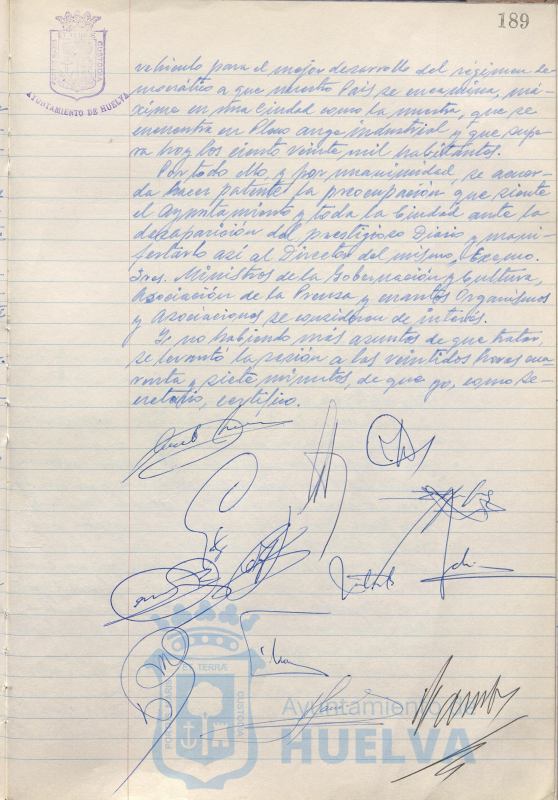 189
AYUNTAMIENTO DE HUELVA
vehículo para el mejor desarrollo del régimen de
mocrático a que nuestro País se encamina, má-
xime en una Ciudad como la nuestra, que se
encuentra en Pleno auge industrial y que supe-
ra hoy los ciento veinte mil habitantes.
Por todo ello, y por unanimidad, se acuer-
da hacer patente la preocupación que siente
el Ayuntamiento y toda la Ciudad ante la
desaparición del prestigioso Diario y mani-
festarlo así al Director del mismo, Excmo.
Sres. Ministros de la Gobernación y Cultura,
Asociación de la Prensa y cuantos Organismos
y Asociaciones se consideren de interés.
Y no habiendo más asuntos de que tratar,
se levantó la sesión a las veintidós horas cua-
renta y siete minutos, de que yo, como Se-
cretario, certifico.
PORTUS MARIS
ET TERRÆ
CUSTODIA
Ayuntamiento de
HUELVA